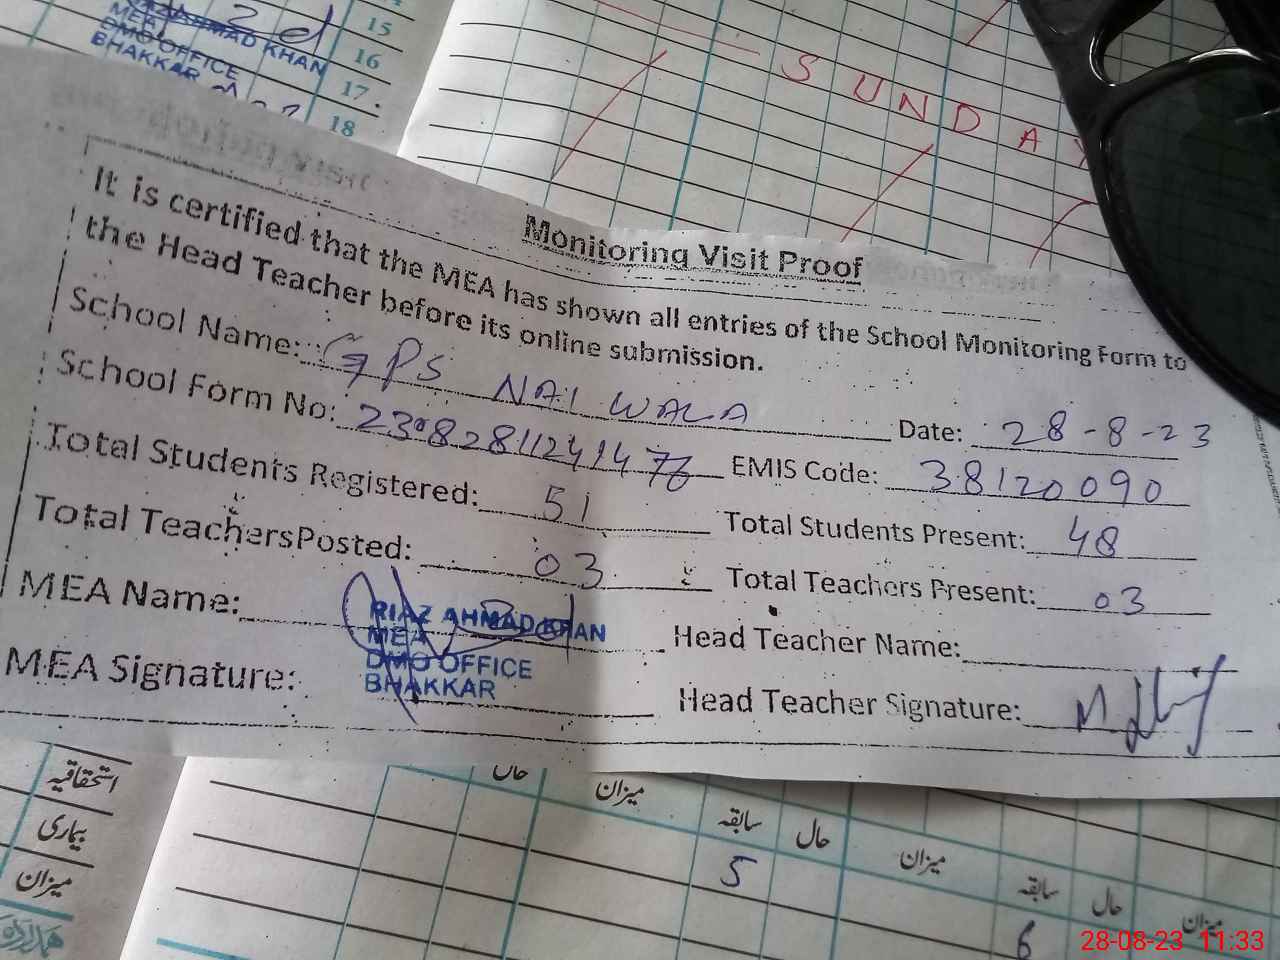 15
16
17
18
AHMAD KHAN
MEA
DMO OFFICE
BHAKKAR
SUNDAY
Monitoring Visit Proof
It is certified that the MEA has shown all entries of the School Monitoring Form to
the Head Teacher before its online submission.
School Name: GPS NAI WALA Date: 28-8-23
School Form No: EMIS Code: 38120090
Total Students Registered: 51 Total Students Present: 48
Total Teachers Posted: 03 Total Teachers Present: 03
MEA Name: RIAZ AHMAD KHAN Head Teacher Name:
MEA
DMO OFFICE
BHAKKAR
MEA Signature: Head Teacher Signature:
استحقاقیہ
بیماری
میزان
حال میزان سابقہ حال میزان سابقہ حال میزان
5
6
28-08-23 11:33